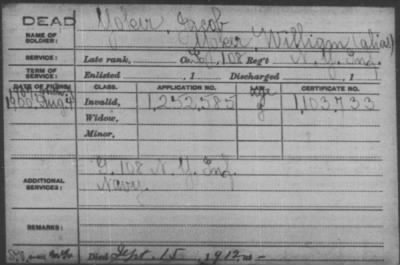 DEAD
NAME OF SOLDIER:
Jacob
William (alias)
SERVICE:
Late rank, Co. G, 108 Reg't N.Y. Inf.
TERM OF SERVICE:
Enlisted , 1 Discharged , 1
DATE OF FILING
CLASS.
APPLICATION NO.
LAW.
CERTIFICATE NO.
Aug
Invalid,
1,252,585
1,103,733
Widow,
Minor,
ADDITIONAL SERVICES:
G. 108 N.Y. Inf.
Navy.
REMARKS:
Died Sept. 15, 1912, at